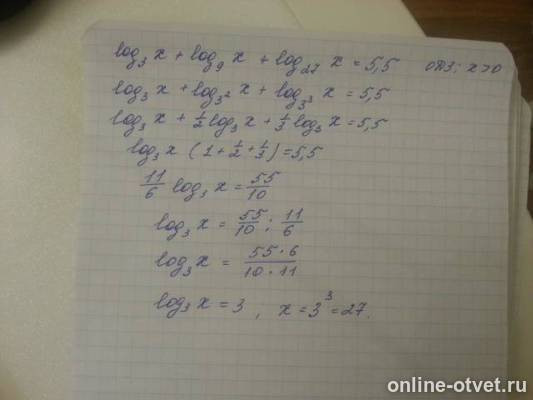 log₃ x + log₉ x + log₂₇ x = 5,5 ОДЗ: x>0
log₃ x + log₃² x + log₃³ x = 5,5
log₃ x + 1/2 log₃ x + 1/3 log₃ x = 5,5
log₃ x (1 + 1/2 + 1/3) = 5,5
11/6 log₃ x = 55/10
log₃ x = 55/10 : 11/6
log₃ x = 55·6/10·11
log₃ x = 3, x = 3³ = 27.
online-otvet.ru